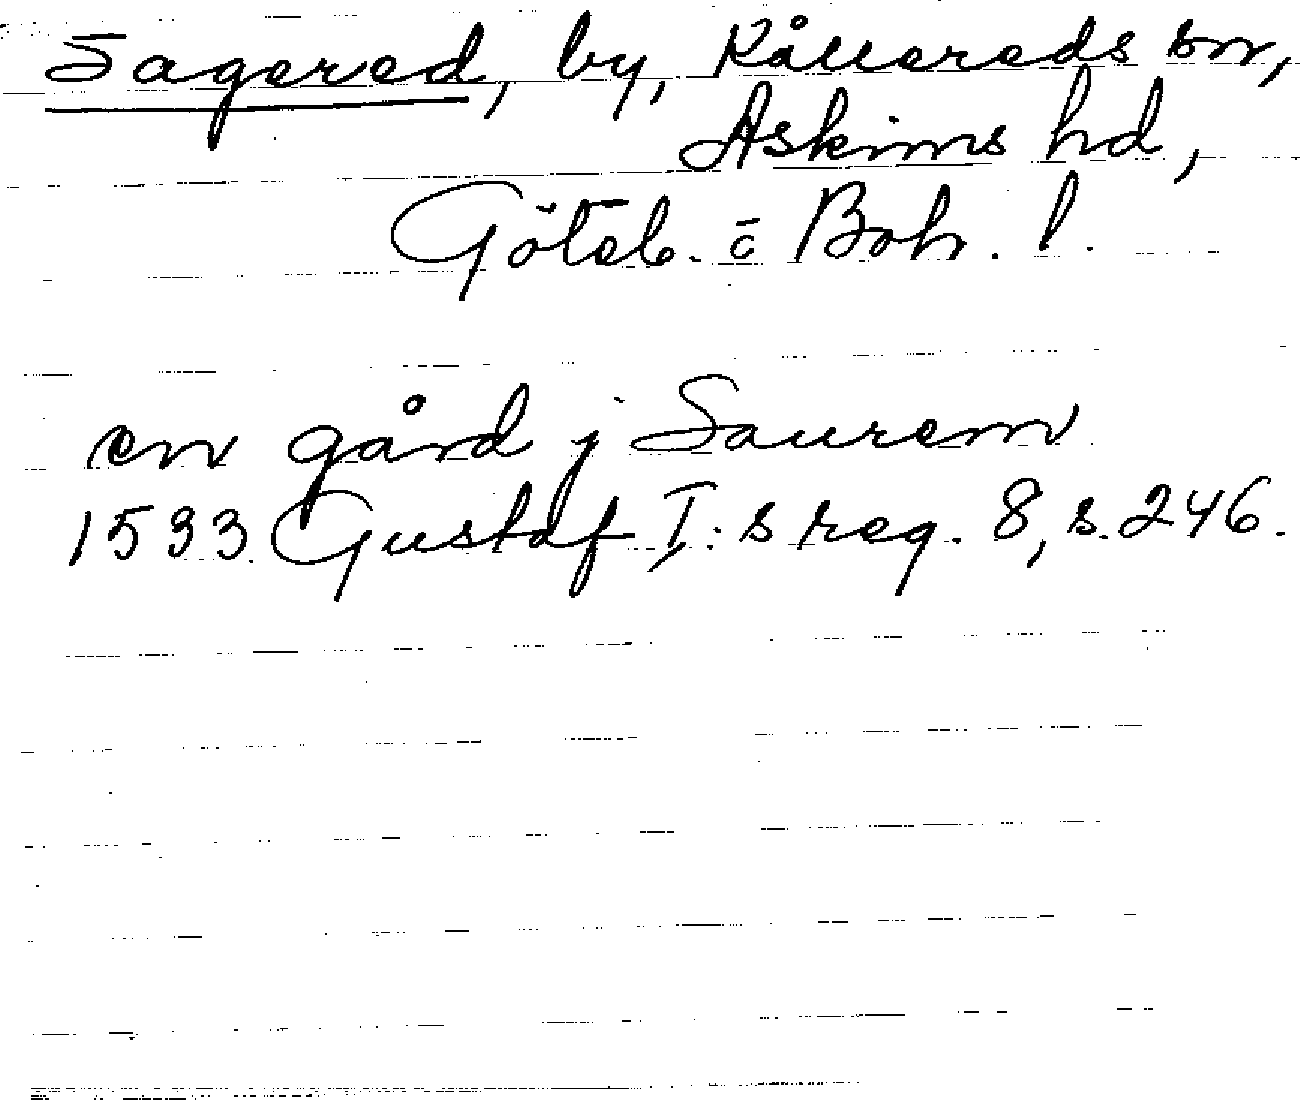 Sagered, by, Kållereds sn,
Askims hd,
Göteb. o Boh. l.
en gård j Saurem
1533. Gustaf I:s reg. 8, s. 246.